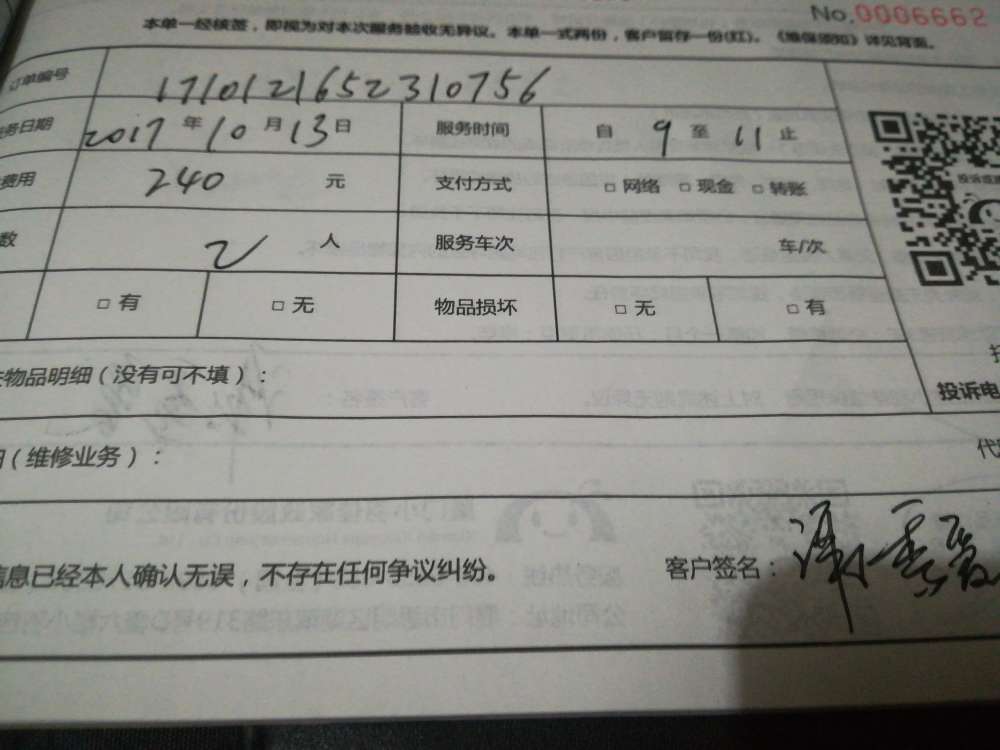 No.0006662
本单一经核签，即视为对本次服务验收无异议。本单一式两份，客户留存一份(红)。《维保须知》详见背面。
订单编号 1710121652310756
务日期 2017 年 10 月 13 日 服务时间 自 9 至 11 止
费用 240 元 支付方式 □ 网络 □ 现金 □ 转账
数 2 人 服务车次 车/次
□ 有 □ 无 物品损坏 □ 无 □ 有
物品明细（没有可不填）：
投诉电
（维修业务）：
代
信息已经本人确认无误，不存在任何争议纠纷。 客户签名：